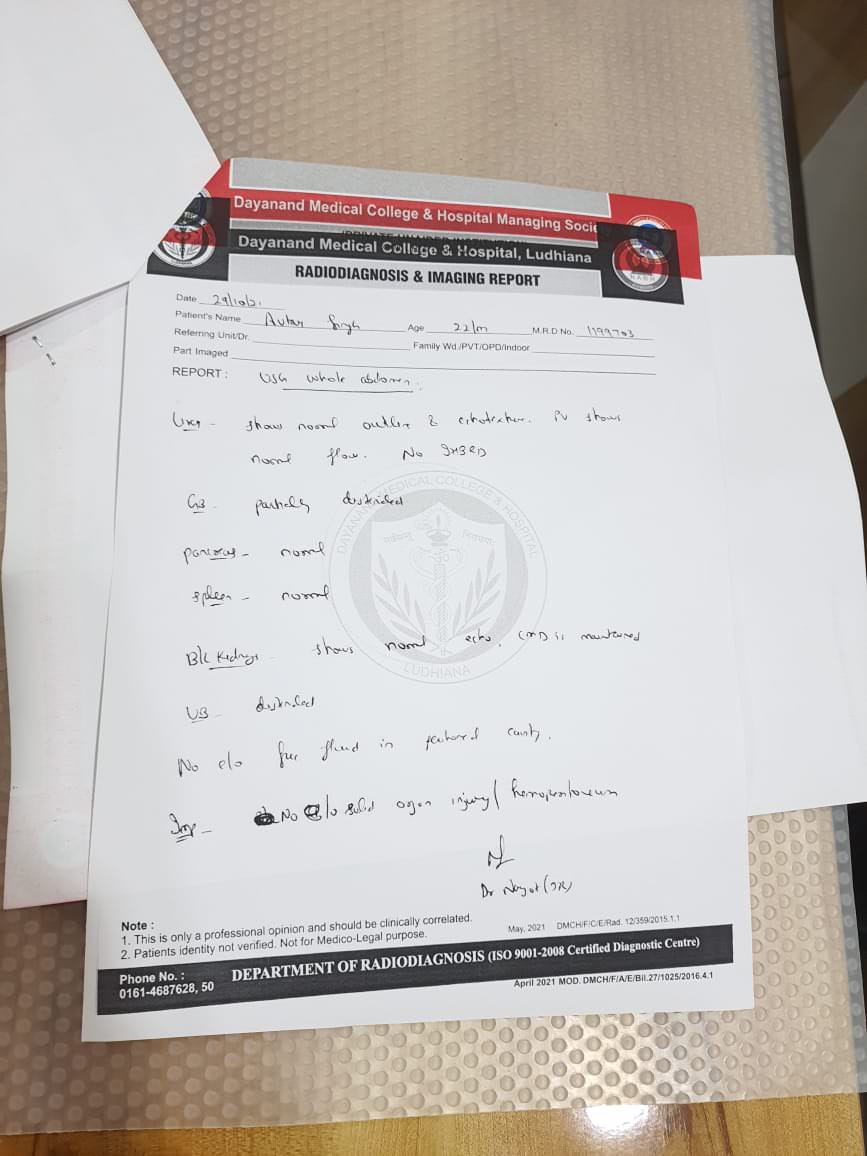 Dayanand Medical College & Hospital Managing Socie
Dayanand Medical College & Hospital, Ludhiana
RADIODIAGNOSIS & IMAGING REPORT
Date 29/10/21
Patient's Name Avtar Singh Age 22/m M.R.D No. 1199703
Referring Unit/Dr. Family Wd./PVT/OPD/Indoor
Part Imaged
REPORT : USG whole abdomen.
Liver - shows normal outline & echotexture. PV shows
normal flow. No IHBRD
GB - partially distended
pancreas - normal
spleen - normal
B/L Kidneys - shows normal echo, CMD is maintained
UB - distended
No e/o free fluid in peritoneal cavity.
Imp - No e/o solid organ injury / hemoperitoneum
Dr (JR)
DAYANAND MEDICAL COLLEGE & HOSPITAL
LUDHIANA
Note :
1. This is only a professional opinion and should be clinically correlated.
2. Patients identity not verified. Not for Medico-Legal purpose.
May, 2021 DMCH/F/C/E/Rad. 12/359/2015.1.1
Phone No. :
0161-4687628, 50
DEPARTMENT OF RADIODIAGNOSIS (ISO 9001-2008 Certified Diagnostic Centre)
April 2021 MOD. DMCH/F/A/E/Bil.27/1025/2016.4.1